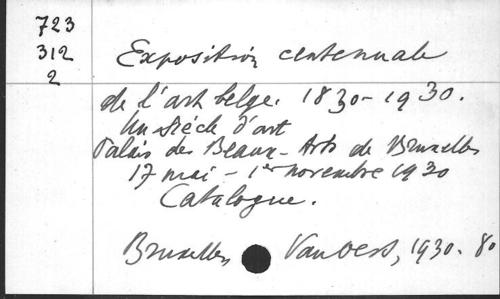 723
312
2
Exposition centennale
de l'art belge. 1830-1930.
Un siècle d'art
Palais des Beaux-Arts de Bruxelles
17 mai - 1er novembre 1930
Catalogue.
Bruxelles, 1930. 80